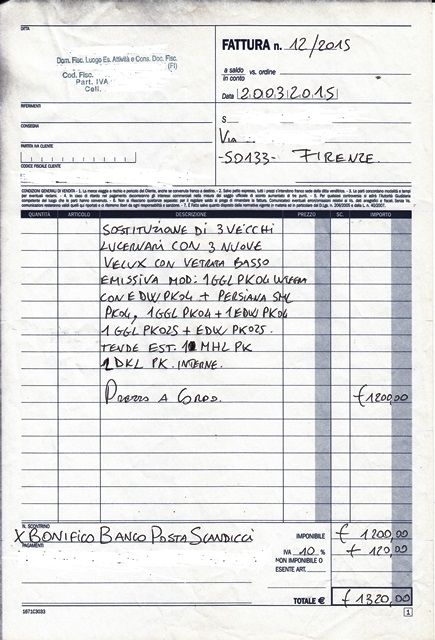 DITTA
Dom. Fisc. Luogo Es. Attività e Cons. Doc. Fisc.
(FI)
Cod. Fisc.
Part. IVA
Cell.
FATTURA n. 12/2015
a saldo
in conto
vs. ordine
Data 20032015
RIFERIMENTI
CONSEGNA
S
VIA
PARTITA IVA CLIENTE
-50133- FIRENZE.
CODICE FISCALE CLIENTE
QUANTITÀ ARTICOLO DESCRIZIONE PREZZO SC. IMPORTO
SOSTITUZIONE DI 3 VECCHI
LUCERNARI CON 3 NUOVE
VELUX CON VETRATA BASSO
EMISSIVA MOD: 1GGL PK04
CON EDW PK04 + PERSIANA SML
PK04, 1GGL PK04 + 1EDW PK04
1GGL PK025 + EDW PK025.
TENDE EST. 1 MHL PK
1DKL PK. INTERNE.
PREZZO A CORPO. € 1200,00
N. SCONTRINO
X BONIFICO BANCO POSTA SCANDICCI
PAGAMENTI
IMPONIBILE € 1200,00
IVA 10 % + 120,00
NON IMPONIBILE O
ESENTE ART.
TOTALE € € 1320,00
1671C3033
1